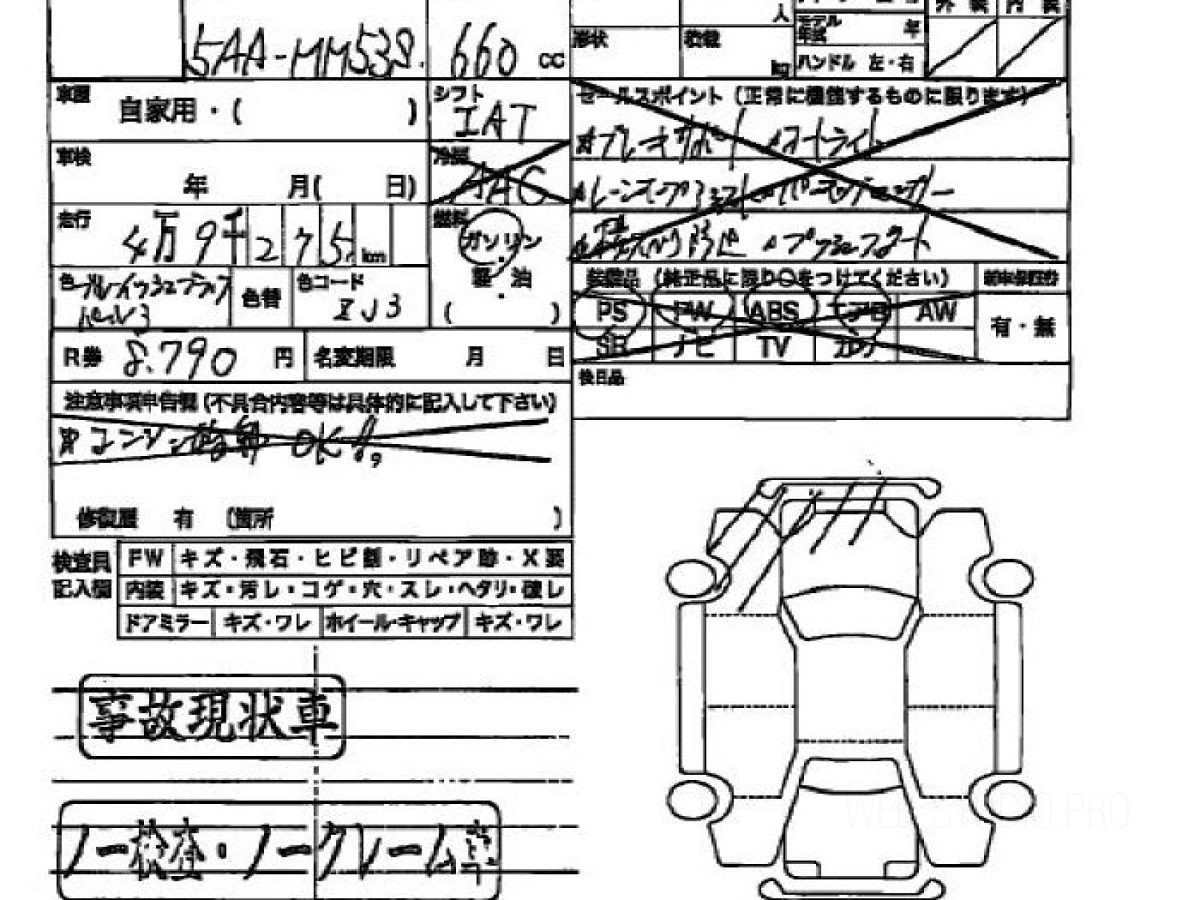 外装 内装
人 モデル年式 年
5AA-MM53S. 660 cc 形状 積載 kg ハンドル 左・右
車歴 自家用・( ) シフト IAT
セールスポイント (正常に機能するものに限ります)
ブレーキサポート オートライト
車検 年 月( 日) 冷房 AAC
走行 4万9千275 km 燃料 ガソリン
プッシュスタート
色 3 色替 色コード ZJ3 軽・油 ( )
装備品 (純正品に限り○をつけてください) 新車保証書
PS PW ABS エアB AW 有・無
SR ナビ TV カワ
R券 8.790 円 名変期限 月 日
後日品
注意事項申告欄 (不具合内容等は具体的に記入して下さい)
エンジン始動 OK!!
修復歴 有 〔箇所 〕
検査員記入欄 FW キズ・飛石・ヒビ割・リペア跡・X要
内装 キズ・汚レ・コゲ・穴・スレ・ヘタリ・破レ
ドアミラー キズ・ワレ ホイール・キャップ キズ・ワレ
事故現状車
ノー検査・ノークレーム車